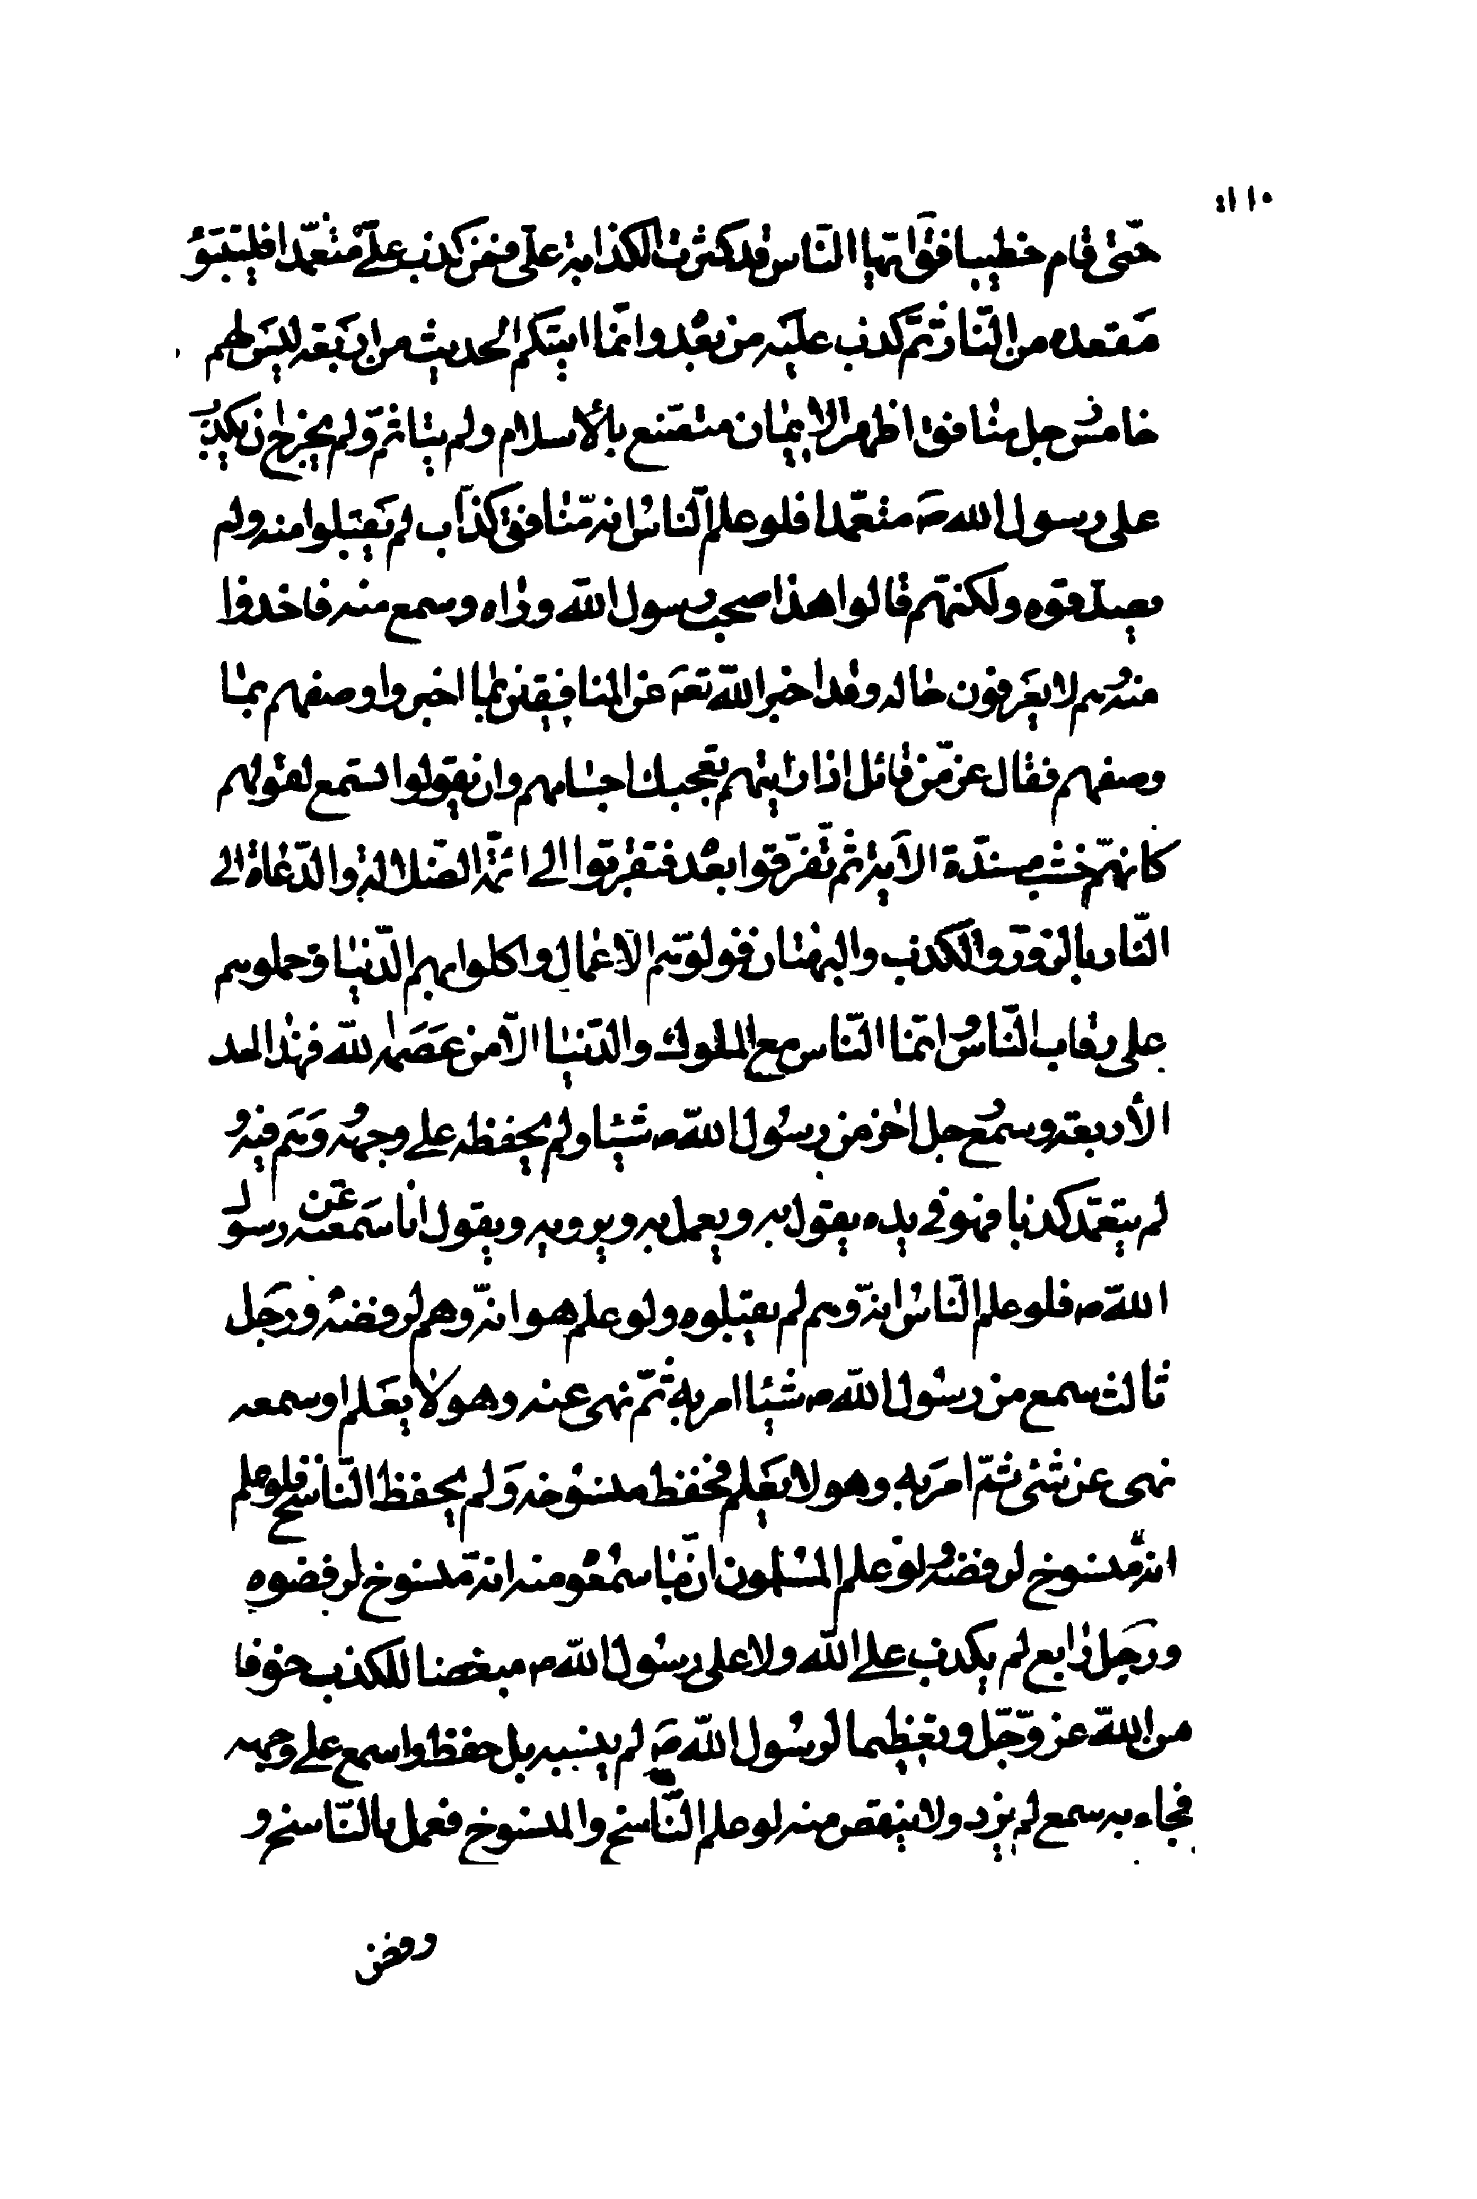 ١١٠
حتّى قام خطيبا فقال ايّها النّاس قد كثرت الكذابة علىّ فمن كذب علىّ متعمّدا فليتبوّء
مقعده من النّار ثمّ كذب عليه من بعد وانّما اتيكم الحديث من اربعة ليس لهم
خامس رجل منافق اظهر الايمان متصنع بالاسلام ولم يتاثم ولم يخرج ان يكذب
على رسول الله ص متعمّدا فلو علم النّاس انه منافق كذّاب لم يقبلوا منه ولم
يصدقوه ولكنهم قالوا هذا صحب رسول الله وراه وسمع منه فاخذوا
منه وهم لا يعرفون حاله وقد اخبر الله تعه عن المنافقين بما اخبر واوصفهم بما
وصفهم فقال عزّ من قائل اذا رايتهم تعجبك اجسامهم وان يقولوا استمع لقولهم
كانهم خشب مسندة الاية ثم تفرقوا بعد فتقربوا الى ائمّة الضلالة والدّعاة الى
النّار بالزور والكذب والبهتان فولوهم الاعمال واكلوا بهم الدّنيا وحملوهم
على رقاب النّاس وانما النّاس مع الملوك والدّنيا الّا من عصمه الله فهذا احد
الأربعة وسمع رجل اخر من رسول الله ص شيئا ولم يحفظه على وجهه ووهم فيه و
لم يتعمّد كذبا فهو فى يده يقول به ويعمل به ويرويه ويقول انا سمعته عن رسول
الله ص فلو علم النّاس انه وهم لم يقبلوه ولو علم هو انه وهم لرفضه ورجل
ثالث سمع من رسول الله ص شيئا امر به ثمّ نهى عنه وهو لا يعلم او سمعه
نهى عن شئ ثمّ امر به وهو لا يعلم فحفظ منسوخه ولم يحفظ النّاسخ فلو علم
انه منسوخ لرفضه ولو علم المسلمون ان ما سمعوه منه انه منسوخ لرفضوه
ورجل رابع لم يكذب على الله ولا على رسول الله ص مبغضا للكذب خوفا
من الله عزّ وجّل وتعظيما لرسول الله ص لم ينسه بل حفظ ما سمع على وجهه
فجاء به سمع لم يزد ولا ينقص منه لو علم النّاسخ والمنسوخ فعمل بالنّاسخ و
ورفض